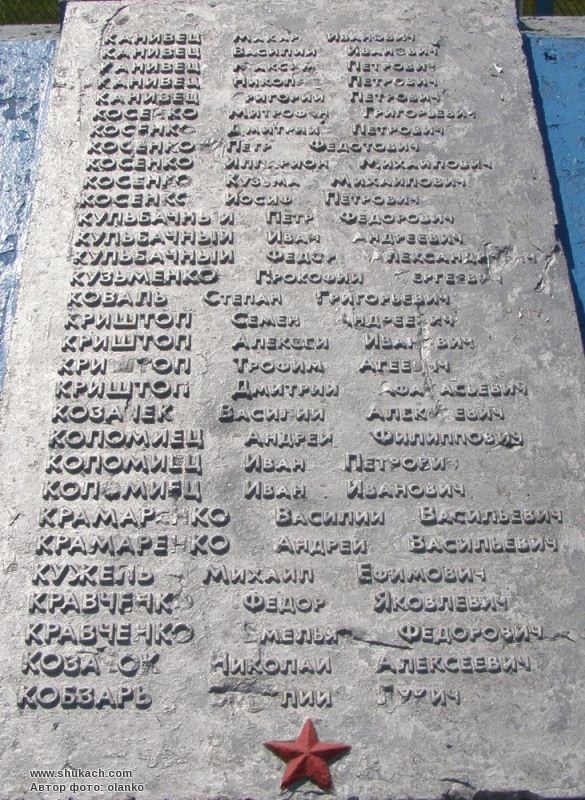 КАНИВЕЦ МАКАР ИВАНОВИЧ
КАНИВЕЦ ВАСИЛИЙ ИВАНОВИЧ
КАНИВЕЦ МАКСИМ ПЕТРОВИЧ
КАНИВЕЦ НИКОЛАЙ ПЕТРОВИЧ
КАНИВЕЦ ГРИГОРИЙ ПЕТРОВИЧ
КОСЕНКО МИТРОФАН ГРИГОРЬЕВИЧ
КОСЕНКО ДМИТРИЙ ПЕТРОВИЧ
КОСЕНКО ПЕТР ФЕДОТОВИЧ
КОСЕНКО ИЛЛАРИОН МИХАЙЛОВИЧ
КОСЕНКО КУЗЬМА МИХАЙЛОВИЧ
КОСЕНКО ИОСИФ ПЕТРОВИЧ
КУЛЬБАЧНЫЙ ПЕТР ФЕДОРОВИЧ
КУЛЬБАЧНЫЙ ИВАН АНДРЕЕВИЧ
КУЛЬБАЧНЫЙ ФЕДОР АЛЕКСАНДРОВИЧ
КУЗЬМЕНКО ПРОКОФИЙ СЕРГЕЕВИЧ
КОВАЛЬ СТЕПАН ГРИГОРЬЕВИЧ
КРИШТОП СЕМЕН АНДРЕЕВИЧ
КРИШТОП АЛЕКСЕЙ ИВАНОВИЧ
КРИШТОП ТРОФИМ АГЕЕВИЧ
КРИШТОП ДМИТРИЙ АФАНАСЬЕВИЧ
ВАСИЛИЙ АЛЕКСЕЕВИЧ
КОЛОМИЕЦ АНДРЕЙ ФИЛИППОВИЧ
КОЛОМИЕЦ ИВАН ПЕТРОВИЧ
КОЛОМИЕЦ ИВАН ИВАНОВИЧ
КРАМАРЕНКО ВАСИЛИЙ ВАСИЛЬЕВИЧ
КРАМАРЕНКО АНДРЕЙ ВАСИЛЬЕВИЧ
КУЖЕЛЬ МИХАИЛ ЕФИМОВИЧ
КРАВЧЕНКО ФЕДОР ЯКОВЛЕВИЧ
КРАВЧЕНКО ЕМЕЛЬЯН ФЕДОРОВИЧ
НИКОЛАЙ АЛЕКСЕЕВИЧ
КОБЗАРЬ
www.shukach.com
Автор фото: olanko